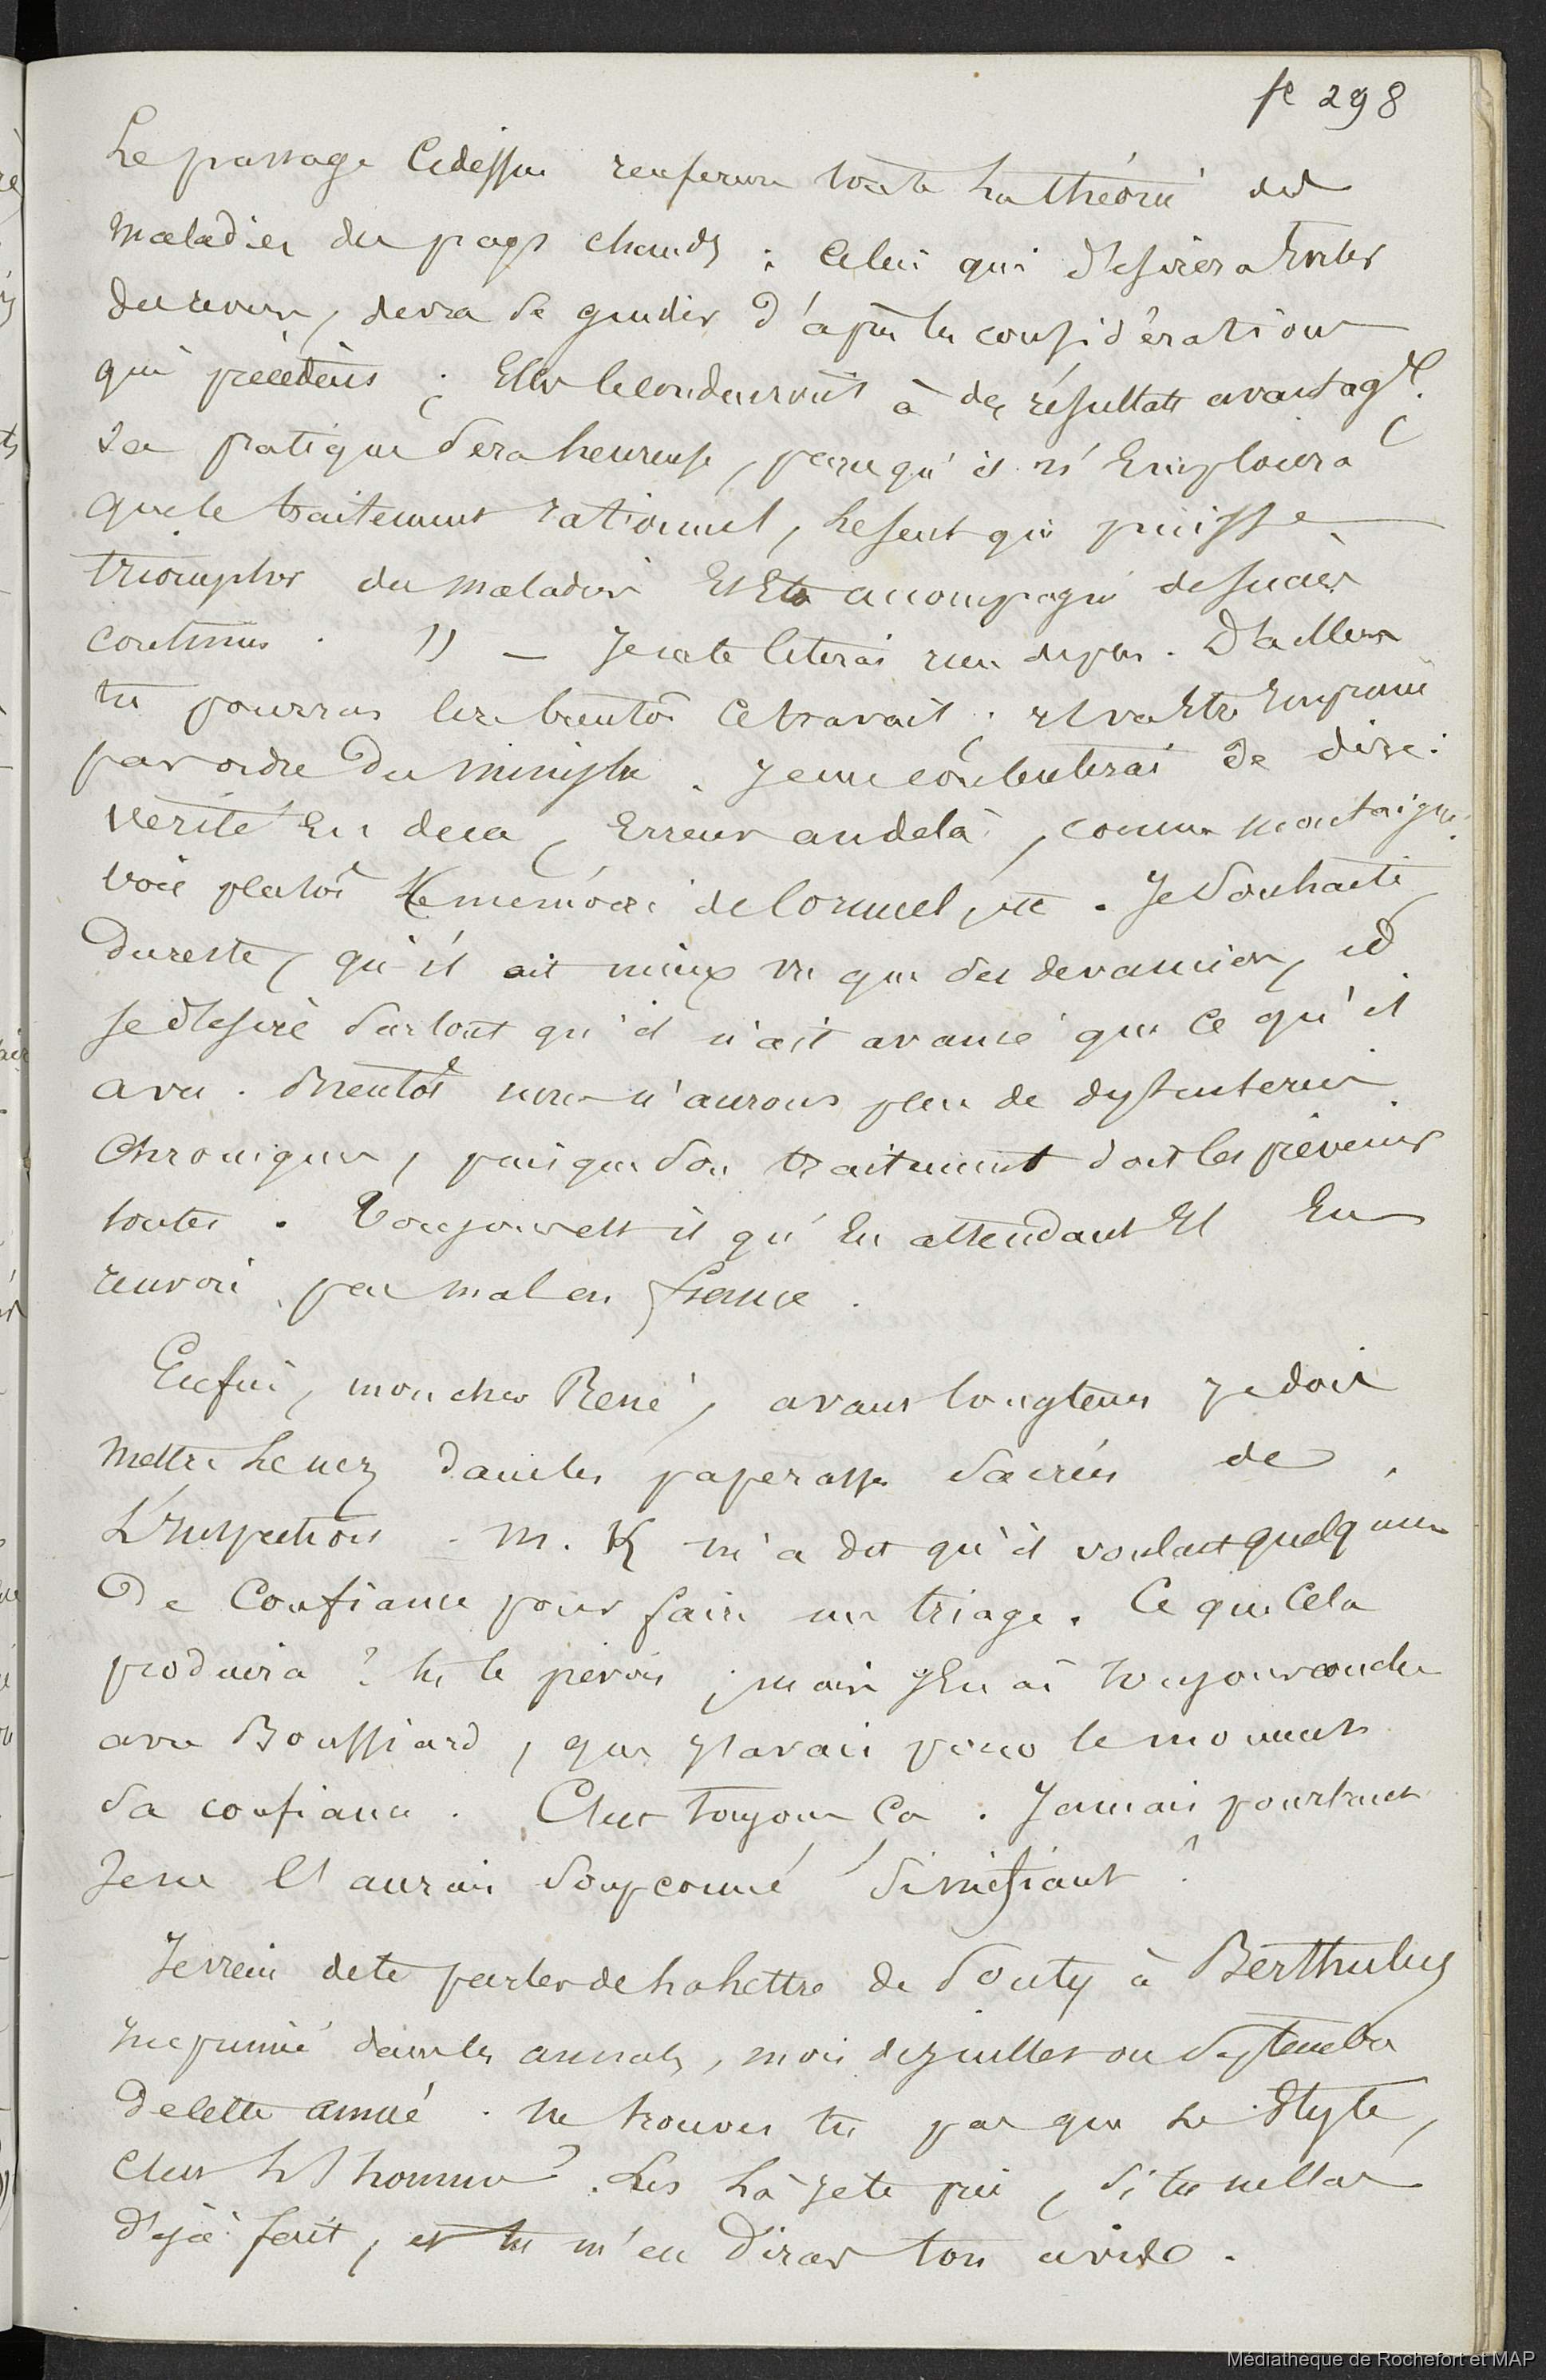 fe 298
Le passage Cidessus renferme toute La théorie des
Maladies des pays chauds ; Celui qui désirera Eviter
des revers, devra se guider d'après les considérations
qui précédens ; Elles le conduiront à des résultats avantag.x
sa pratique sera heureuse, parcequ'il n'Emploiera
que le traitement rationnel, Le seul qui puisse
triompher des maladies Et Etre accompagné de succès
continus. » — Je ne te Citerai rien de plus. D'ailleurs
tu pourras lire bientôt Ce travail ; il va Etre Imprimé
par ordre du ministre. Je me contenterai de dire :
vérité En deca, Erreur au delà, comme montaigne.
voir plutôt Le mémoire de lormel, etc. Je souhaite,
du reste, qu'il ait mieux vu que ses devanciers, et
Je désire surtout qu'il n'ait avancé que Ce qu'il
a vu. Bientôt nous n'aurons plus de dyssenteries
Chroniques, puisque son traitement doit les prévenir
toutes. Toujours est il qu'En attendant Il En
renvoie pas mal en france.
Enfin, mon cher René, avant longtems je dois
mettre Le nez dans les paperasses sacrées de
L'Inspection. M. K m'a dit qu'il voulait quelqu'un
De Confiance pour faire un triage. Ce que Cela
produira ? tu le prévois ; mais J'En ai toujours conclu
avec Bouffiard, que J'avais pour le moment
sa confiance. C'est toujours Ca. Jamais pourtant
Je ne l'aurais soupconné si méfiant !
Je viens de te parler de La Lettre de Souty à Berthulus
Imprimé dans les annales, mois de Juillet ou Septembre
de cette année. ne trouves tu pas que Le Style,
C'est L'homme ? Lis La je te prie, si tu ne l'as
déjà fait, et tu m'en diras ton avis.
Médiathèque de Rochefort et MAP